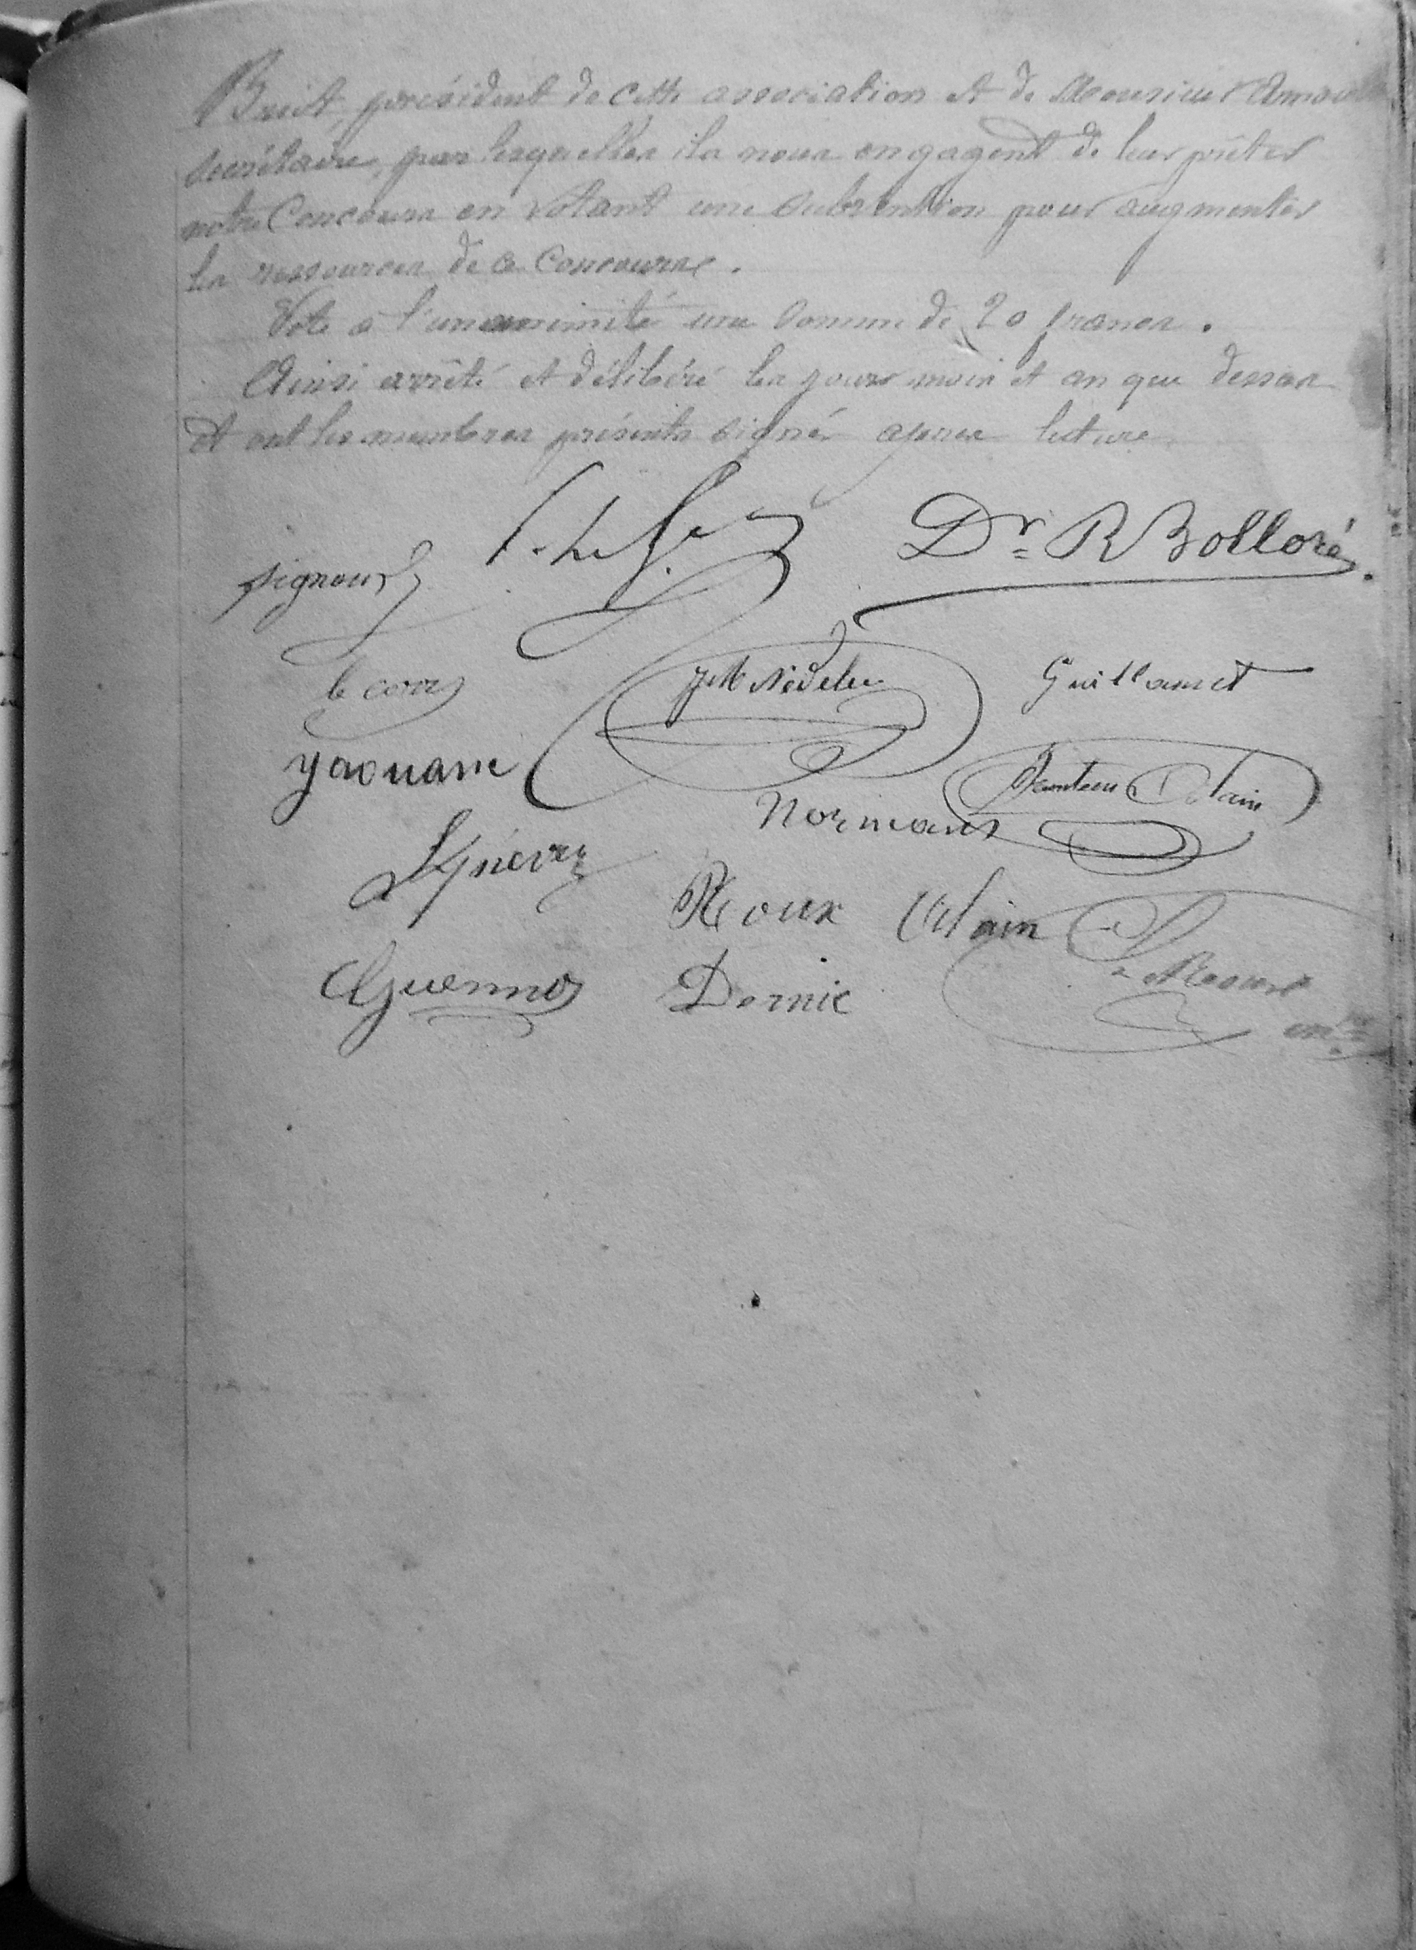 président de cette association et de Monsieur
secrétaire, par lesquelles ils nous engagent de leur prêter
notre Concours en votant une subvention pour augmenter
les ressources de ce Concours.
Vote à l'unanimité une somme de 20 francs.
Ainsi arrêté et délibéré les jours mois et an que dessus
et ont les membres présents signés après lecture.
Dr R Bolloré
signour
le corre
JM Nédelec Guillamet
yaouanc
Alain
Normant
Roux Alain
Guennou Dornic